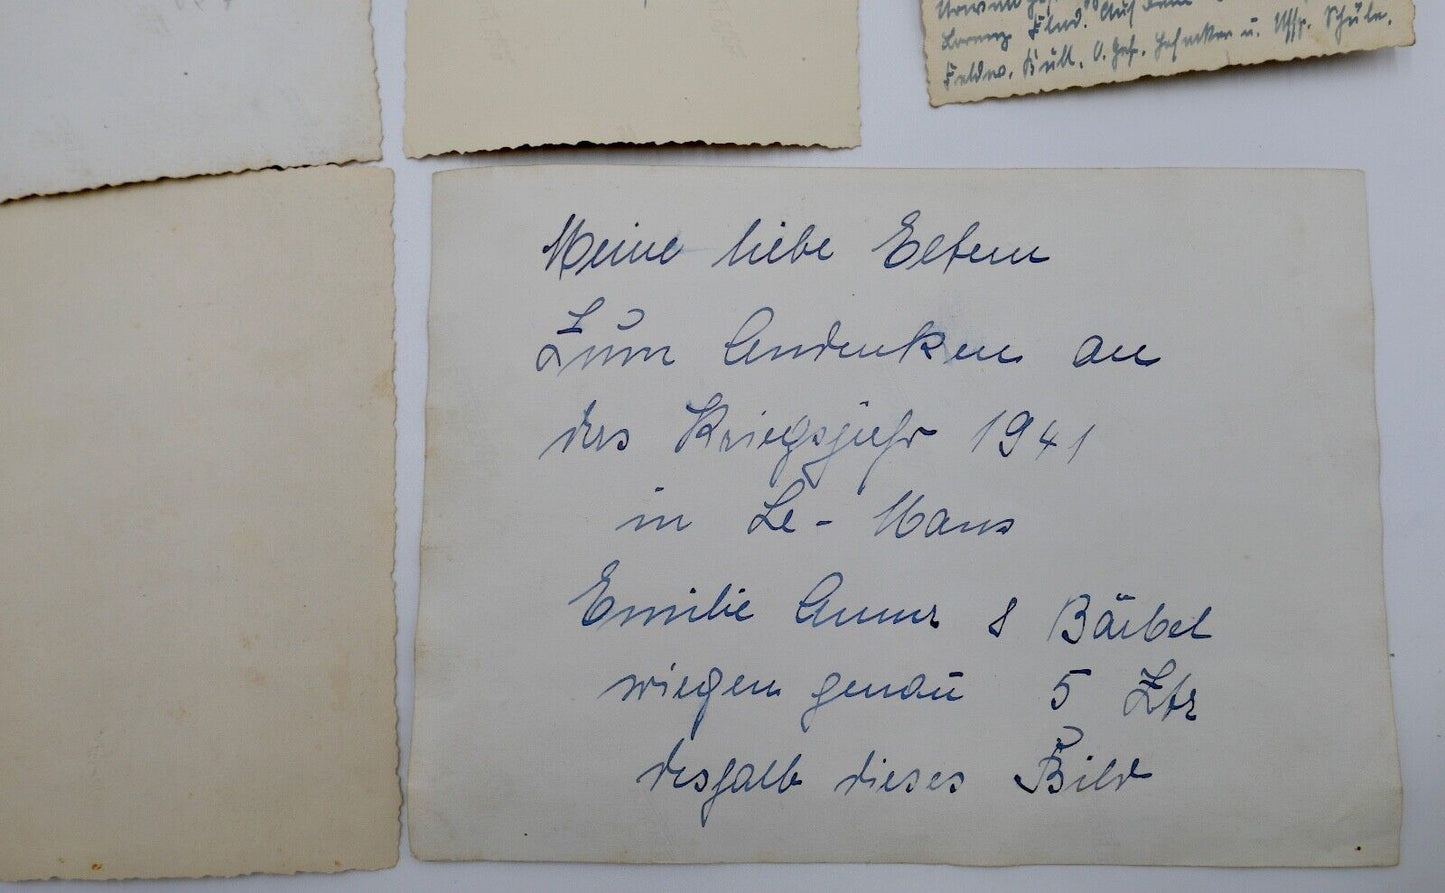 Lorenz Flnd. Auf dem
Feldw. Küll, O. Gef. u. Uffz. Schüle.
Meine liebe Eltern
Zum Andenken an
das Kriegsjahr 1941
in Le-Mans
Emilie Anna & Bärbel
wiegen genau 5 Ztr
deshalb dieses Bild